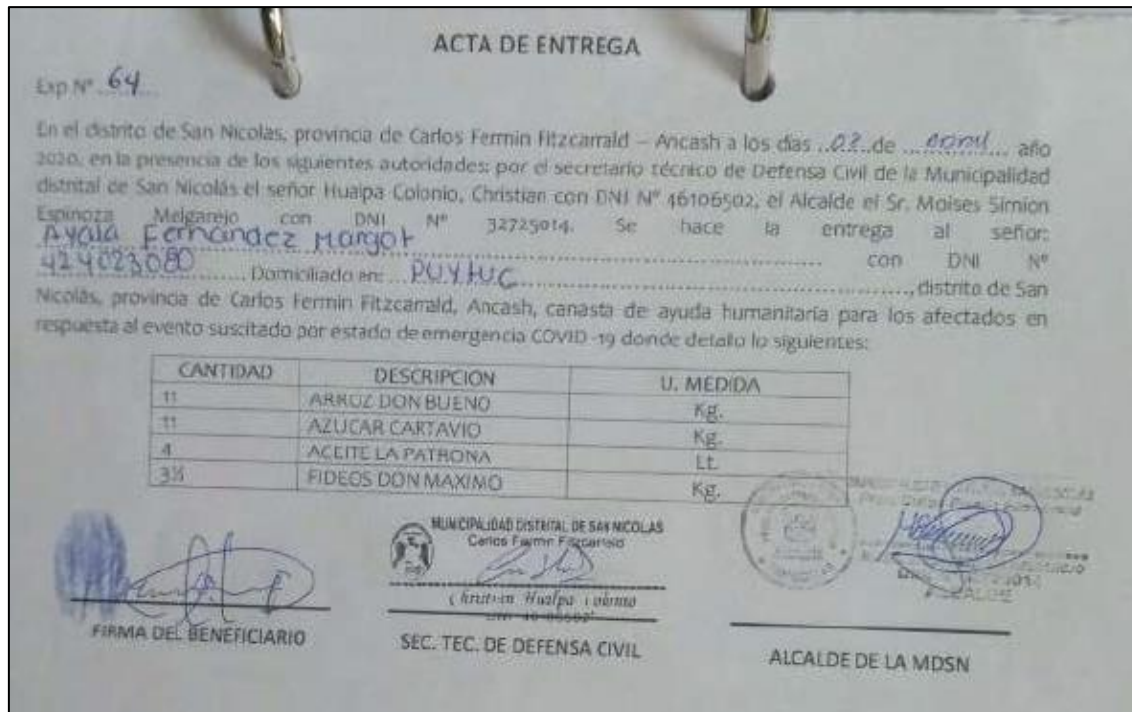 ACTA DE ENTREGA
Exp Nº 64
En el distrito de San Nicolas, provincia de Carlos Fermin Fitzcarrald – Ancash a los días ..02..de ...abril... año
2020, en la presencia de los siguientes autoridades: por el secretario técnico de Defensa Civil de la Municipalidad
distrital de San Nicolás el señor Hualpa Colonio, Christian con DNI Nº 46106502, el Alcalde el Sr. Moises Simion
Espinoza Melgarejo con DNI Nº 32725014. Se hace la entrega al señor:
Ayala Fernandez Margot con DNI Nº
424023080 Domiciliado en: PUYHUC, distrito de San
Nicolás, provincia de Carlos Fermin Fitzcarrald, Ancash, canasta de ayuda humanitaria para los afectados en
respuesta al evento suscitado por estado de emergencia COVID -19 donde detallo lo siguientes:
CANTIDAD DESCRIPCION U. MEDIDA
11 ARROZ DON BUENO Kg.
11 AZUCAR CARTAVIO Kg.
4 ACEITE LA PATRONA Lt.
3½ FIDEOS DON MAXIMO Kg.
MUNICIPALIDAD DISTRITAL DE SAN NICOLAS
Carlos Fermin Fitzcarrald
Christian Hualpa Colonio
FIRMA DEL BENEFICIARIO
SEC. TEC. DE DEFENSA CIVIL
ALCALDE
ALCALDE DE LA MDSN